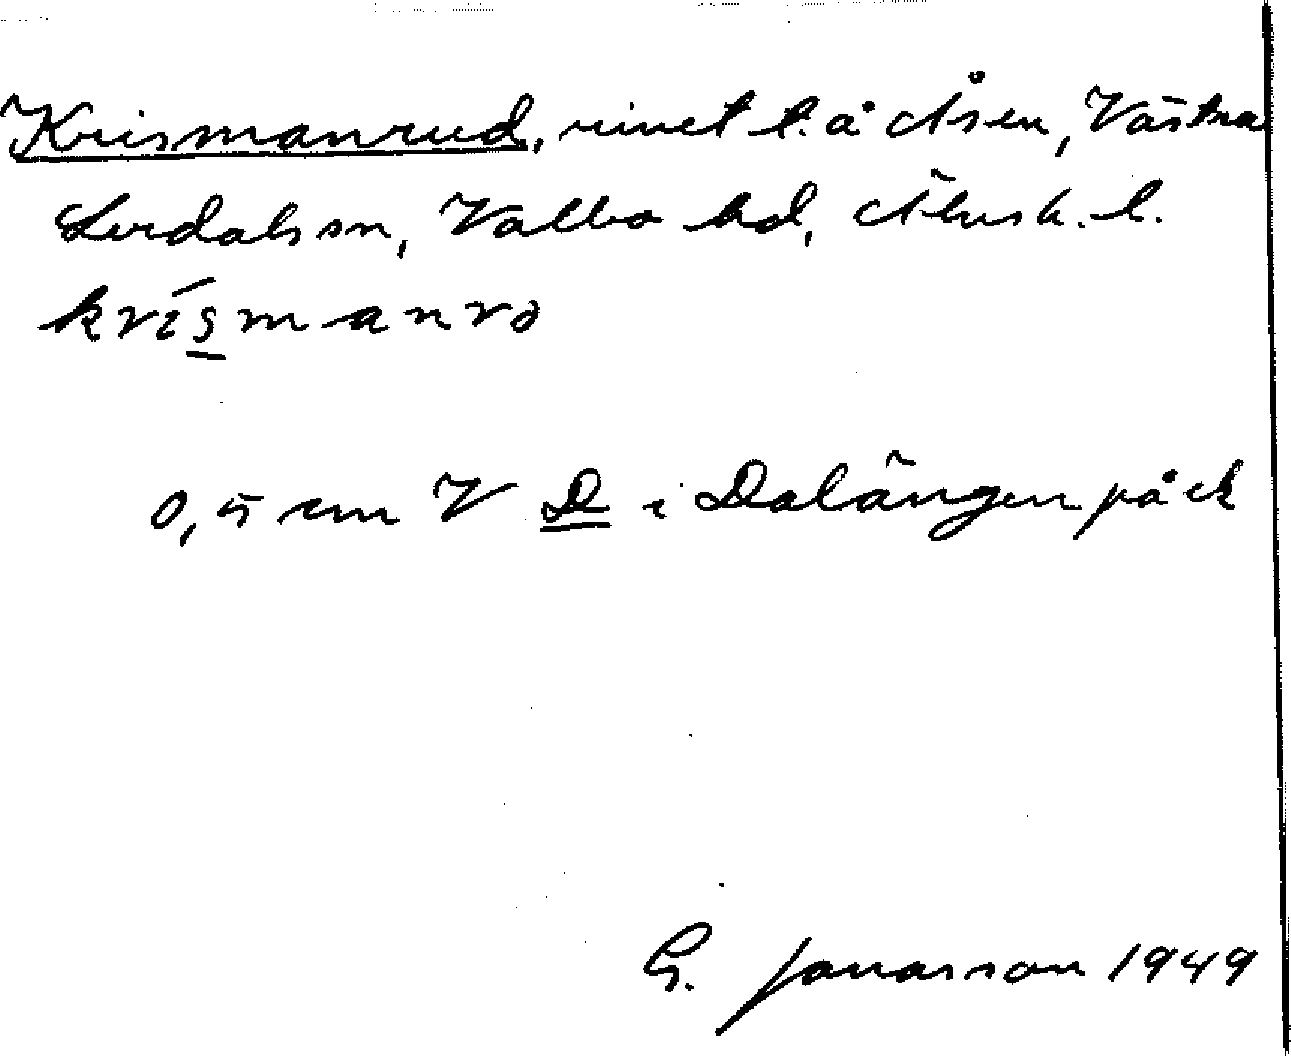 Krismanrud, rivet t. å Åsen, Västra
Lerdals sn, Valbo hd, Älvsb. l.
krísmanrə
0,5 cm V D i Dalängen på ek
G. Jonasson 1949